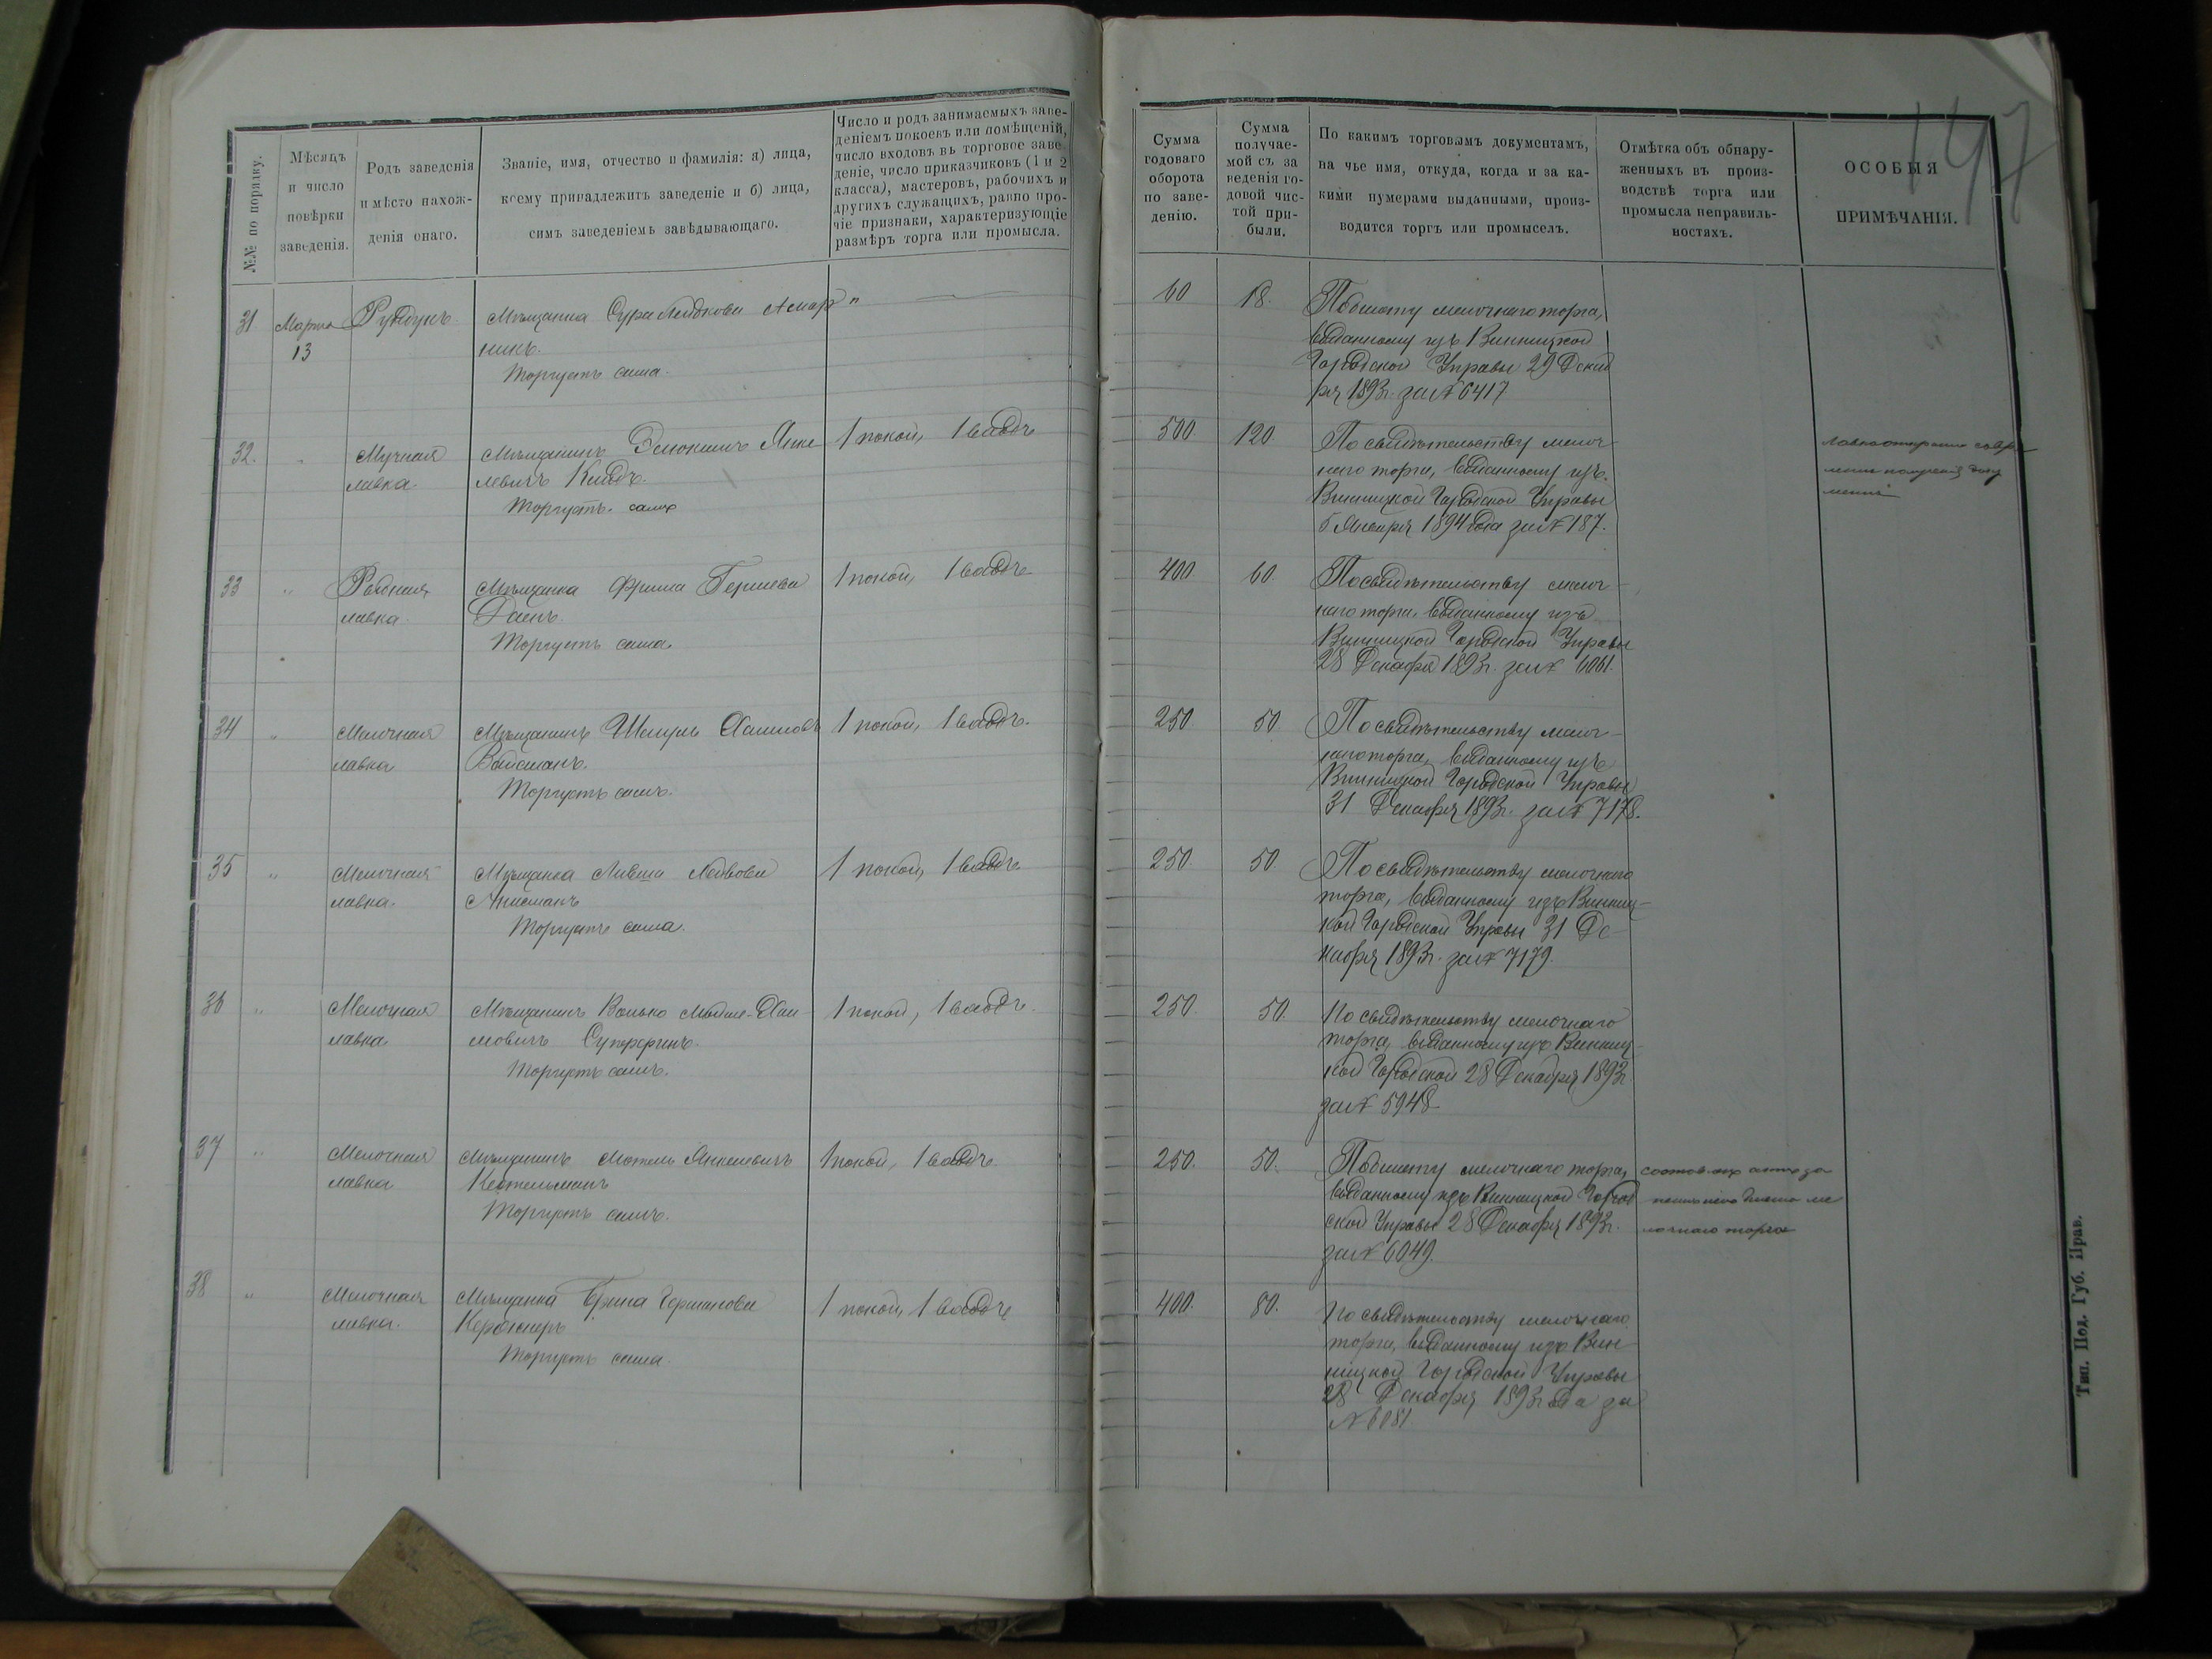 №№ по порядку.
Мѣсяцъ
и число
повѣрки
заведенія.
Родъ заведенія
и мѣсто нахож-
денія онаго.
Званіе, имя, отчество и фамилія: а) лица,
коему принадлежитъ заведеніе и б) лица,
симъ заведеніемъ завѣдывающаго.
Число и родъ занимаемыхъ заве-
деніемъ покоевъ или помѣщеній,
число входовъ въ торговое заве-
деніе, число приказчиковъ (1 и 2
класса), мастеровъ, рабочихъ и
другихъ служащихъ, равно про-
чіе признаки, характеризующіе
размѣръ торга или промысла.
Сумма
годоваго
оборота
по заве-
денію.
Сумма
получае-
мой съ за
веденія го-
довой чис-
той при-
были.
По какимъ торговымъ документамъ,
на чье имя, откуда, когда и за ка-
кими нумерами выданными, произ-
водится торгъ или промыселъ.
Отмѣтка объ обнару-
женныхъ въ произ-
водствѣ торга или
промысла неправиль-
ностяхъ.
ОСОБЫЯ
ПРИМѢЧАНІЯ.
197
31
Марта
13
Рундукъ
Мѣщанка Сура
никъ.
Торгуетъ сама.
60
18.
По билету мелочнаго торга,
выданному изъ Винницкой
Городской Управы 29 Декаб
ря 1893 г. за № 6417
32.
Мучная
лавка
Мѣщанинъ Янке
левичъ
Торгуетъ самъ
1 покой, 1 входъ
500
120.
По свидѣтельству мелоч-
наго торга, выданному изъ
Винницкой Городской Управы
5 Января 1894 года за № 187.
Лавка открыта
33
"
Рыбная
лавка.
Мѣщанка Фрима Гершева
Торгуетъ сама.
1 покой, 1 входъ
400
60.
По свидѣтельству мелоч-
наго торга, выданному изъ
Винницкой Городской Управы
28 Декабря 1893 г. за № 6061.
34
"
Мелочная
лавка
Мѣщанинъ Шмуль Хаимовъ
Вайсманъ.
Торгуетъ самъ.
1 покой, 1 входъ.
250
50.
По свидѣтельству мелоч-
наго торга, выданному изъ
Винницкой Городской Управы
31 Декабря 1893 г. за № 7178.
35
"
Мелочная
лавка.
Мѣщанка Лейбова
Торгуетъ сама.
1 покой, 1 входъ
250.
50
По свидѣтельству мелочнаго
торга, выданному изъ Винниц-
кой Городской Управы 31 Де-
кабря 1893 г. за № 7179.
36
"
Мелочная
лавка
Мѣщанинъ Волько Хаи-
мовичъ
Торгуетъ самъ.
1 покой, 1 входъ.
250.
50.
По свидѣтельству мелочнаго
торга, выданному изъ Винниц-
кой Городской 28 Декабря 1893 г.
за № 5948
37
"
Мелочная
лавка
Мѣщанинъ Мотель Янкелевичъ
Кестельманъ
Торгуетъ самъ.
1 покой, 1 входъ.
250.
50.
По билету мелочнаго торга,
выданному изъ Винницкой Город
ской Управы 28 Декабря 1893 г.
за № 6049.
составленъ актъ за
билета ме
лочнаго торга
38
"
Мелочная
лавка.
Мѣщанка
Торгуетъ сама
1 покой, 1 входъ
400.
80.
По свидѣтельству мелочнаго
торга, выданному изъ Вин-
ницкой Городской Управы
28 Декабря 1893 года за
№ 6081.
Тип. Под. Губ. Прав.